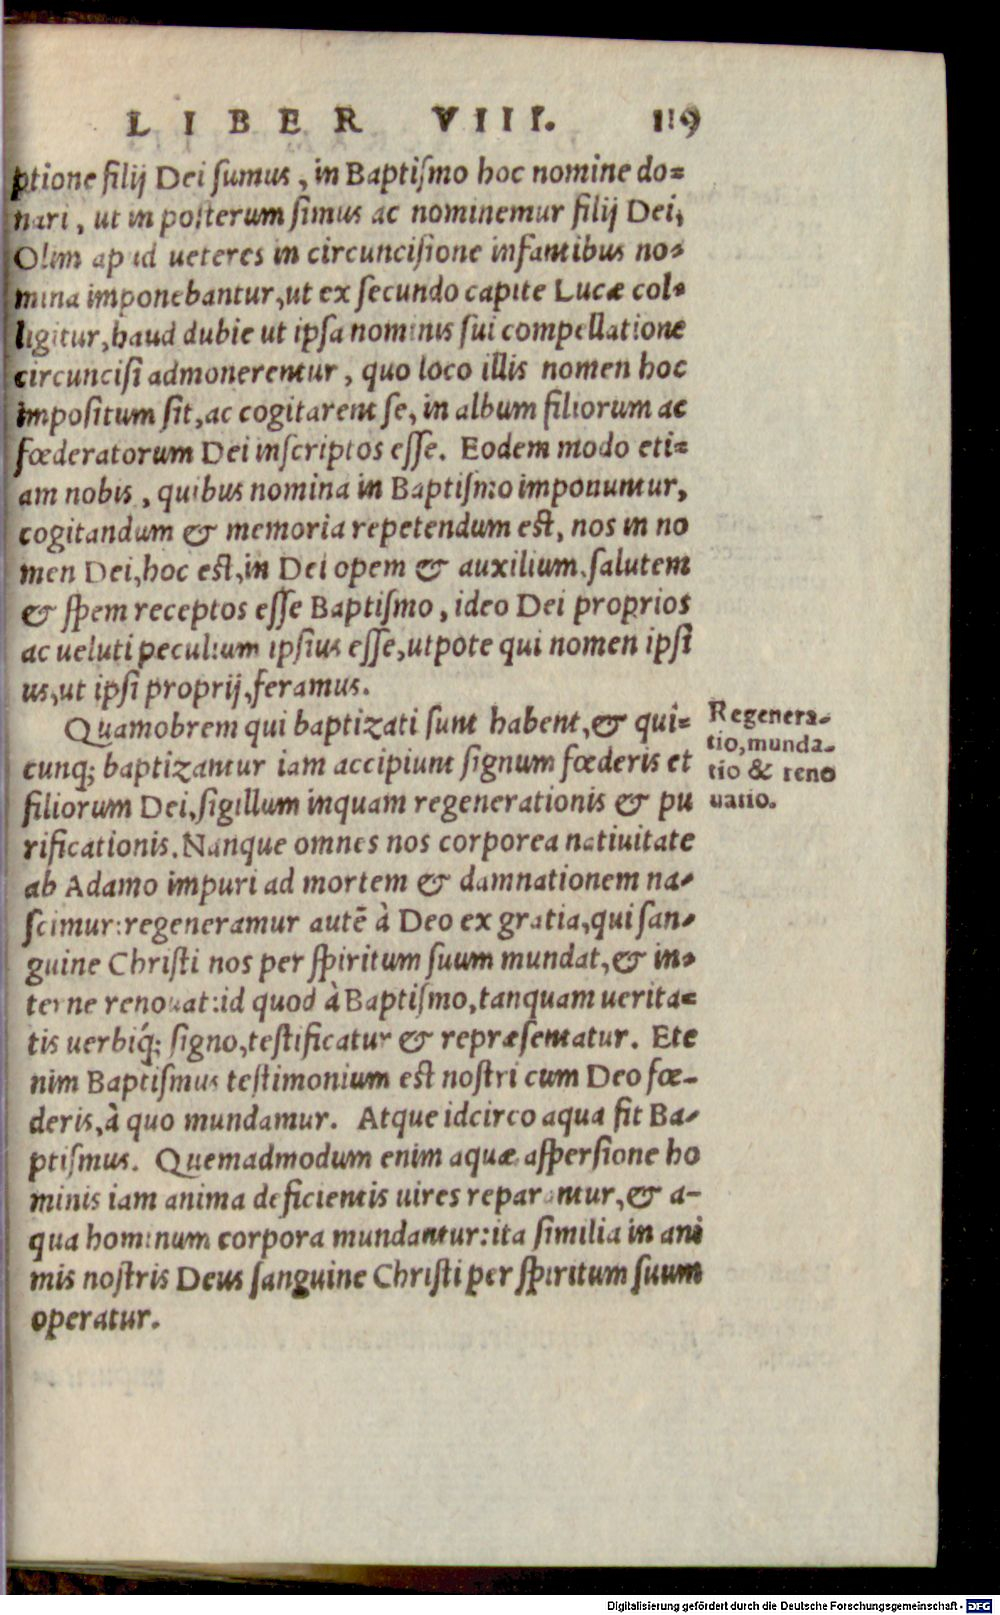 LIBER VIII. 119
ptione filij Dei sumus, in Baptismo hoc nomine do=
nari, ut in posterum simus ac nominemur filij Dei,
Olim apud ueteres in circuncisione infantibus no=
mina imponebantur, ut ex secundo capite Lucæ col=
ligitur, haud dubie ut ipsa nominis sui compellatione
circuncisi admonerentur, quo loco illis nomen hoc
impositum sit, ac cogitarent se, in album filiorum ac
fœderatorum Dei inscriptos esse. Eodem modo eti=
am nobis, quibus nomina in Baptismo imponuntur,
cogitandum & memoria repetendum est, nos in no
men Dei, hoc est, in Dei opem & auxilium, salutem
& spem receptos esse Baptismo, ideo Dei proprios
ac ueluti peculium ipsius esse, utpote qui nomen ipsi
us, ut ipsi proprij, feramus.
Quamobrem qui baptizati sunt habent, & qui=
cunq; baptizantur iam accipiunt signum fœderis et
filiorum Dei, sigillum inquam regenerationis & pu
rificationis. Nanque omnes nos corporea natiuitate
ab Adamo impuri ad mortem & damnationem na=
scimur: regeneramur autē à Deo ex gratia, qui san=
guine Christi nos per spiritum suum mundat, & in=
terne renouat: id quod à Baptismo, tanquam uerita=
tis uerbiq́; signo, testificatur & repræsentatur. Ete
nim Baptismus testimonium est nostri cum Deo fœ-
deris, à quo mundamur. Atque idcirco aqua fit Ba=
ptismus. Quemadmodum enim aquæ aspersione ho
minis iam anima deficientis uires reparantur, & a-
qua hominum corpora mundantur: ita similia in ani
mis nostris Deus sanguine Christi per spiritum suum
operatur.
Regenera-
tio, munda-
tio & reno
uatio.
Digitalisierung gefördert durch die Deutsche Forschungsgemeinschaft - DFG